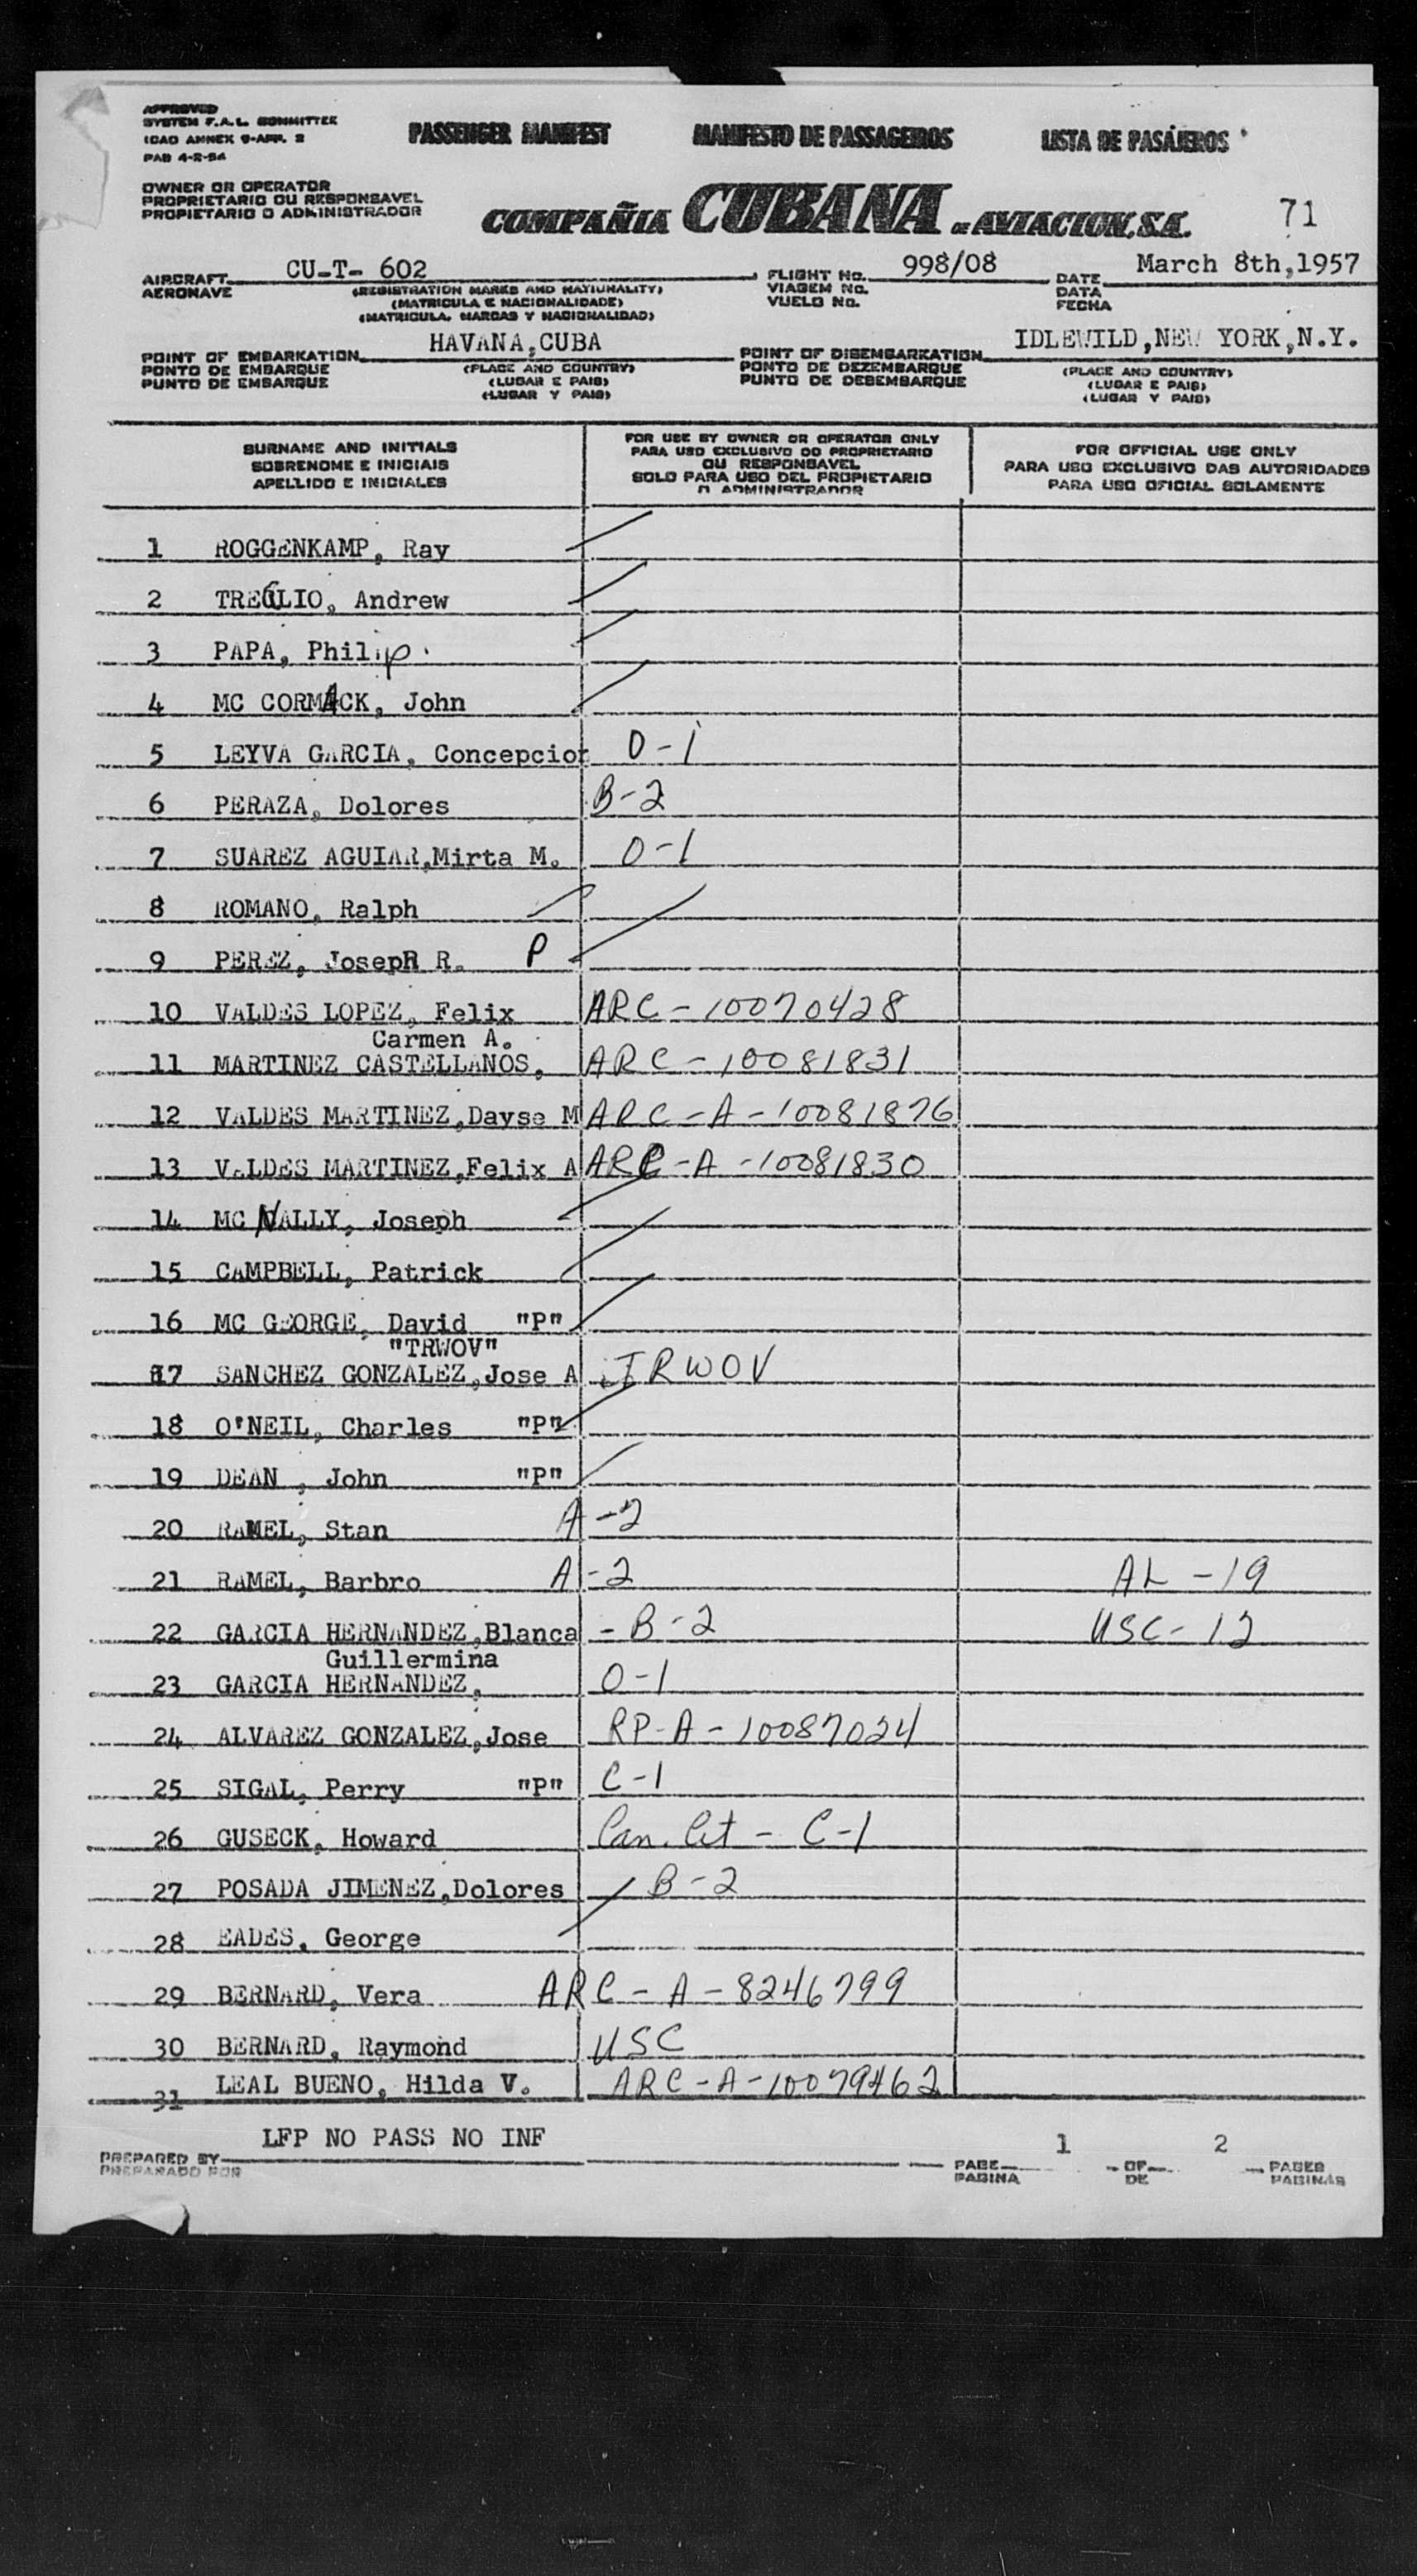 APPROVED
SYSTEM F.A.L. COMMITTEE
ICAO ANNEX 9-APP. 2
PAB 4-2-54
PASSENGER MANIFEST MANIFESTO DE PASSAGEIROS LISTA DE PASAJEROS
OWNER OR OPERATOR
PROPRIETARIO OU RESPONSAVEL
PROPIETARIO O ADMINISTRADOR
COMPAÑIA CUBANA DE AVIACION, S.A. 71
AIRCRAFT CU-T- 602 FLIGHT No. 998/08 DATE March 8th,1957
AERONAVE (REGISTRATION MARKS AND NATIONALITY) VIAGEM No. DATA
(MATRICULA E NACIONALIDADE) VUELO No. FECHA
(MATRICULA, MARCAS Y NACIONALIDAD)
POINT OF EMBARKATION HAVANA,CUBA POINT OF DISEMBARKATION IDLEWILD,NEW YORK,N.Y.
PONTO DE EMBARQUE (PLACE AND COUNTRY) PONTO DE DEZEMBARQUE (PLACE AND COUNTRY)
PUNTO DE EMBARQUE (LUGAR E PAIS) PUNTO DE DESEMBARQUE (LUGAR E PAIS)
(LUGAR Y PAIS) (LUGAR Y PAIS)
SURNAME AND INITIALS
SOBRENOME E INICIAIS
APELLIDO E INICIALES
FOR USE BY OWNER OR OPERATOR ONLY
PARA USO EXCLUSIVO DO PROPRIETARIO
OU RESPONSAVEL
SOLO PARA USO DEL PROPIETARIO
O ADMINISTRADOR
FOR OFFICIAL USE ONLY
PARA USO EXCLUSIVO DAS AUTORIDADES
PARA USO OFICIAL SOLAMENTE
1 ROGGENKAMP, Ray
2 TREGLIO, Andrew
3 PAPA, Philip
4 MC CORMACK, John
5 LEYVA GARCIA, Concepcion O-1
6 PERAZA, Dolores B-2
7 SUAREZ AGUIAR,Mirta M. O-1
8 ROMANO, Ralph
9 PEREZ, Joseph R. P
10 VALDES LOPEZ, Felix ARC-10070428
Carmen A.
11 MARTINEZ CASTELLANOS, ARC-10081831
12 VALDES MARTINEZ,Dayse M ARC-A-10081876
13 VALDES MARTINEZ,Felix A ARC-A-10081830
14 MC NALLY, Joseph
15 CAMPBELL, Patrick
16 MC GEORGE, David "P"
"TRWOV"
17 SANCHEZ GONZALEZ,Jose A TRWOV
18 O'NEIL, Charles "P"
19 DEAN , John "P"
20 RAMEL, Stan A-2
21 RAMEL, Barbro A-2 AL-19
22 GARCIA HERNANDEZ,Blanca - B-2 USC-12
Guillermina
23 GARCIA HERNANDEZ, O-1
24 ALVAREZ GONZALEZ,Jose RP-A-10087024
25 SIGAL, Perry "P" C-1
26 GUSECK, Howard Can. Cit - C-1
27 POSADA JIMENEZ,Dolores B-2
28 EADES, George
29 BERNARD, Vera ARC-A-8246799
30 BERNARD, Raymond USC
31 LEAL BUENO, Hilda V. ARC-A-10079462
PREPARED BY LFP NO PASS NO INF PAGE 1 OF 2 PAGES
PREPARADO POR PAGINA DE PAGINAS